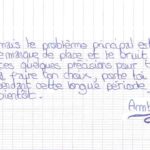 mais le problème principal est
le manque de place et le bruit
ces quelques précisions pour t'
à faire ton choix, porte toi
pendant cette longue période.
bientôt.